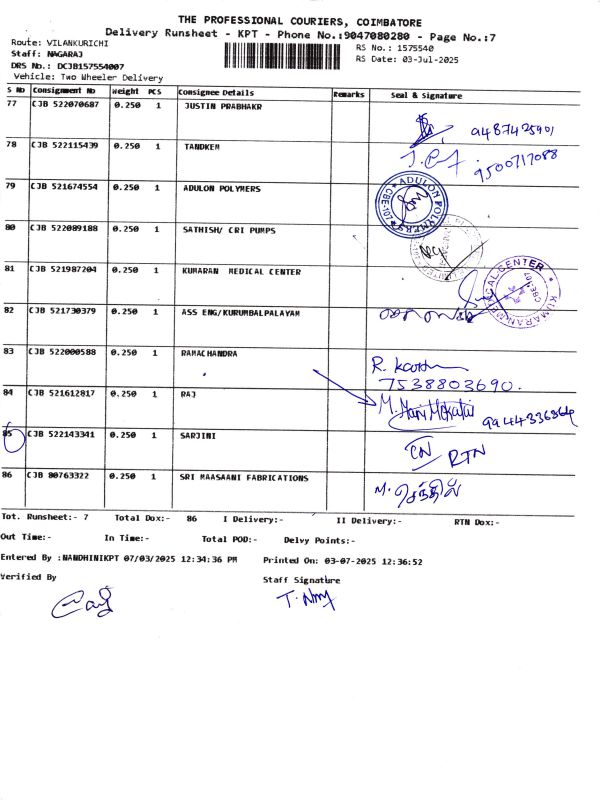 THE PROFESSIONAL COURIERS, COIMBATORE
Delivery Runsheet - KPT - Phone No.:9047080280 - Page No.:7
Route: VILANKURICHI
RS No.: 1575540
Staff: NAGARAJ
RS Date: 03-Jul-2025
DRS No.: DCJB157554007
Vehicle: Two Wheeler Delivery
S No Consignment No Weight PCS Consignee Details Remarks Seal & Signature
77 CJB 522070687 0.250 1 JUSTIN PRABHAKR 9487425901
78 CJB 522115439 0.250 1 TANDKEM 9500717088
79 CJB 521674554 0.250 1 ADULON POLYMERS ADULON POLYMERS
80 CJB 522089188 0.250 1 SATHISH/ CRI PUMPS
81 CJB 521987204 0.250 1 KUMARAN MEDICAL CENTER
82 CJB 521730379 0.250 1 ASS ENG/KURUMBALPALAYAM
83 CJB 522000588 0.250 1 RAMACHANDRA R.
7538803690.
84 CJB 521612817 0.250 1 RAJ M.
85 CJB 522143341 0.250 1 SARJINI RTN
86 CJB 80763322 0.250 1 SRI MAASAANI FABRICATIONS M. செந்தில்
Tot. Runsheet:- 7 Total Dox:- 86 I Delivery:- II Delivery:- RTN Dox:-
Out Time:- In Time:- Total POD:- Delvy Points:-
Entered By :NANDHINIKPT 07/03/2025 12:34:36 PM Printed On: 03-07-2025 12:36:52
Verified By Staff Signature